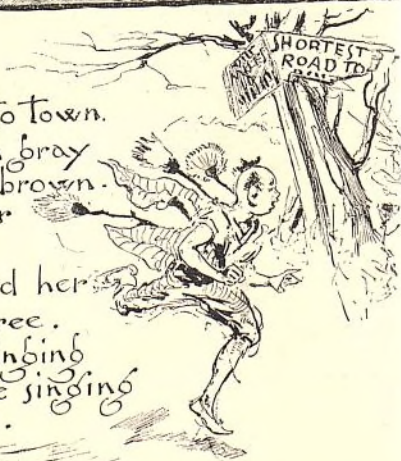 SHORTEST
ROAD TO
to town.
gray
brown.
d her
ree.
nging
e singing